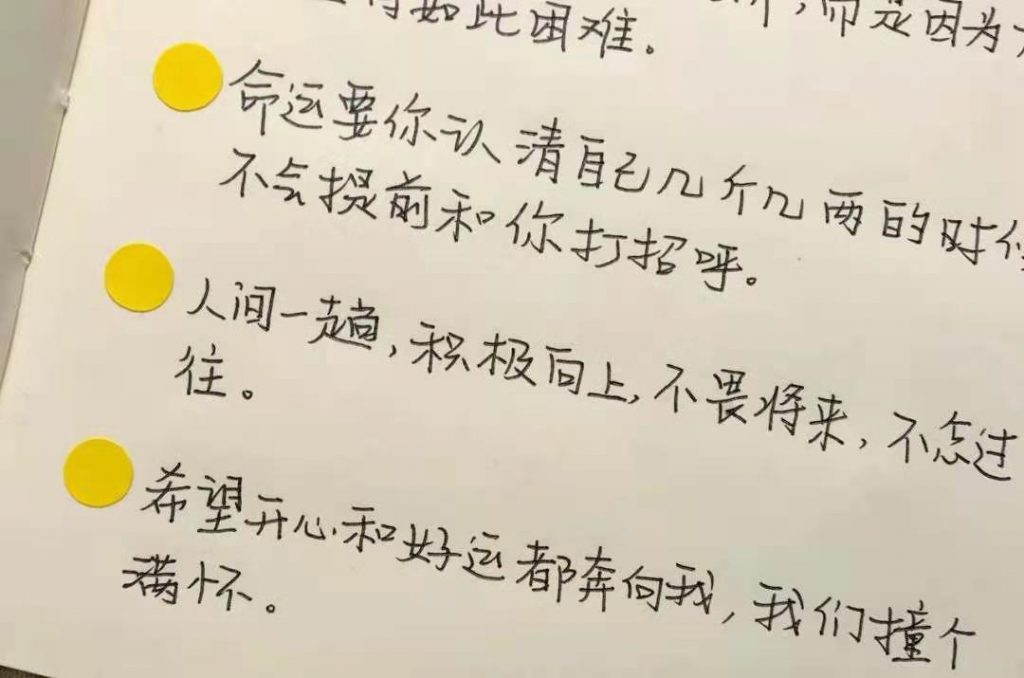 ，而是因为
如此困难。
命运要你认清自己几斤几两的时
不会提前和你打招呼。
人间一趟，积极向上，不畏将来，不念过
往。
希望开心和好运都奔向我，我们撞个
满怀。